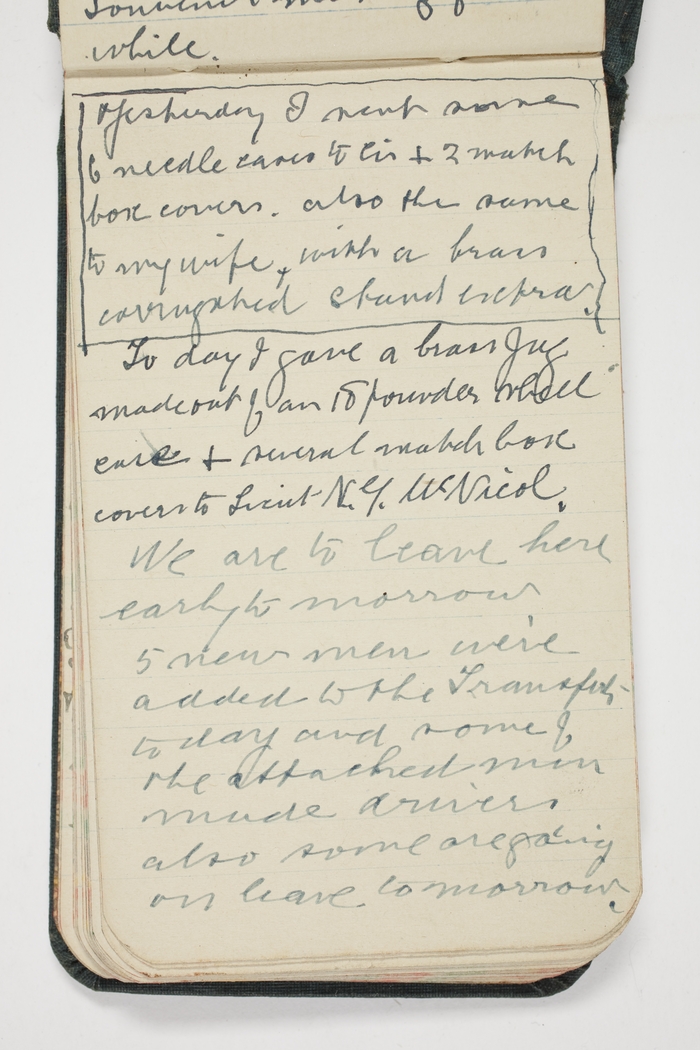 while.
Yesterday I sent some
6 needle cases to Cis + 2 match
box covers. also the same
to my wife, with a brass
corrugated stand extra.
To day I gave a brass Jug
made out of an 18 pounder shell
case + several match box
covers to Lieut N.Y. McNicol.
We are to leave here
early to morrow
5 new men were
added to the Transport
to day and some of
the attached men
made drivers
also some are going
on leave to morrow.